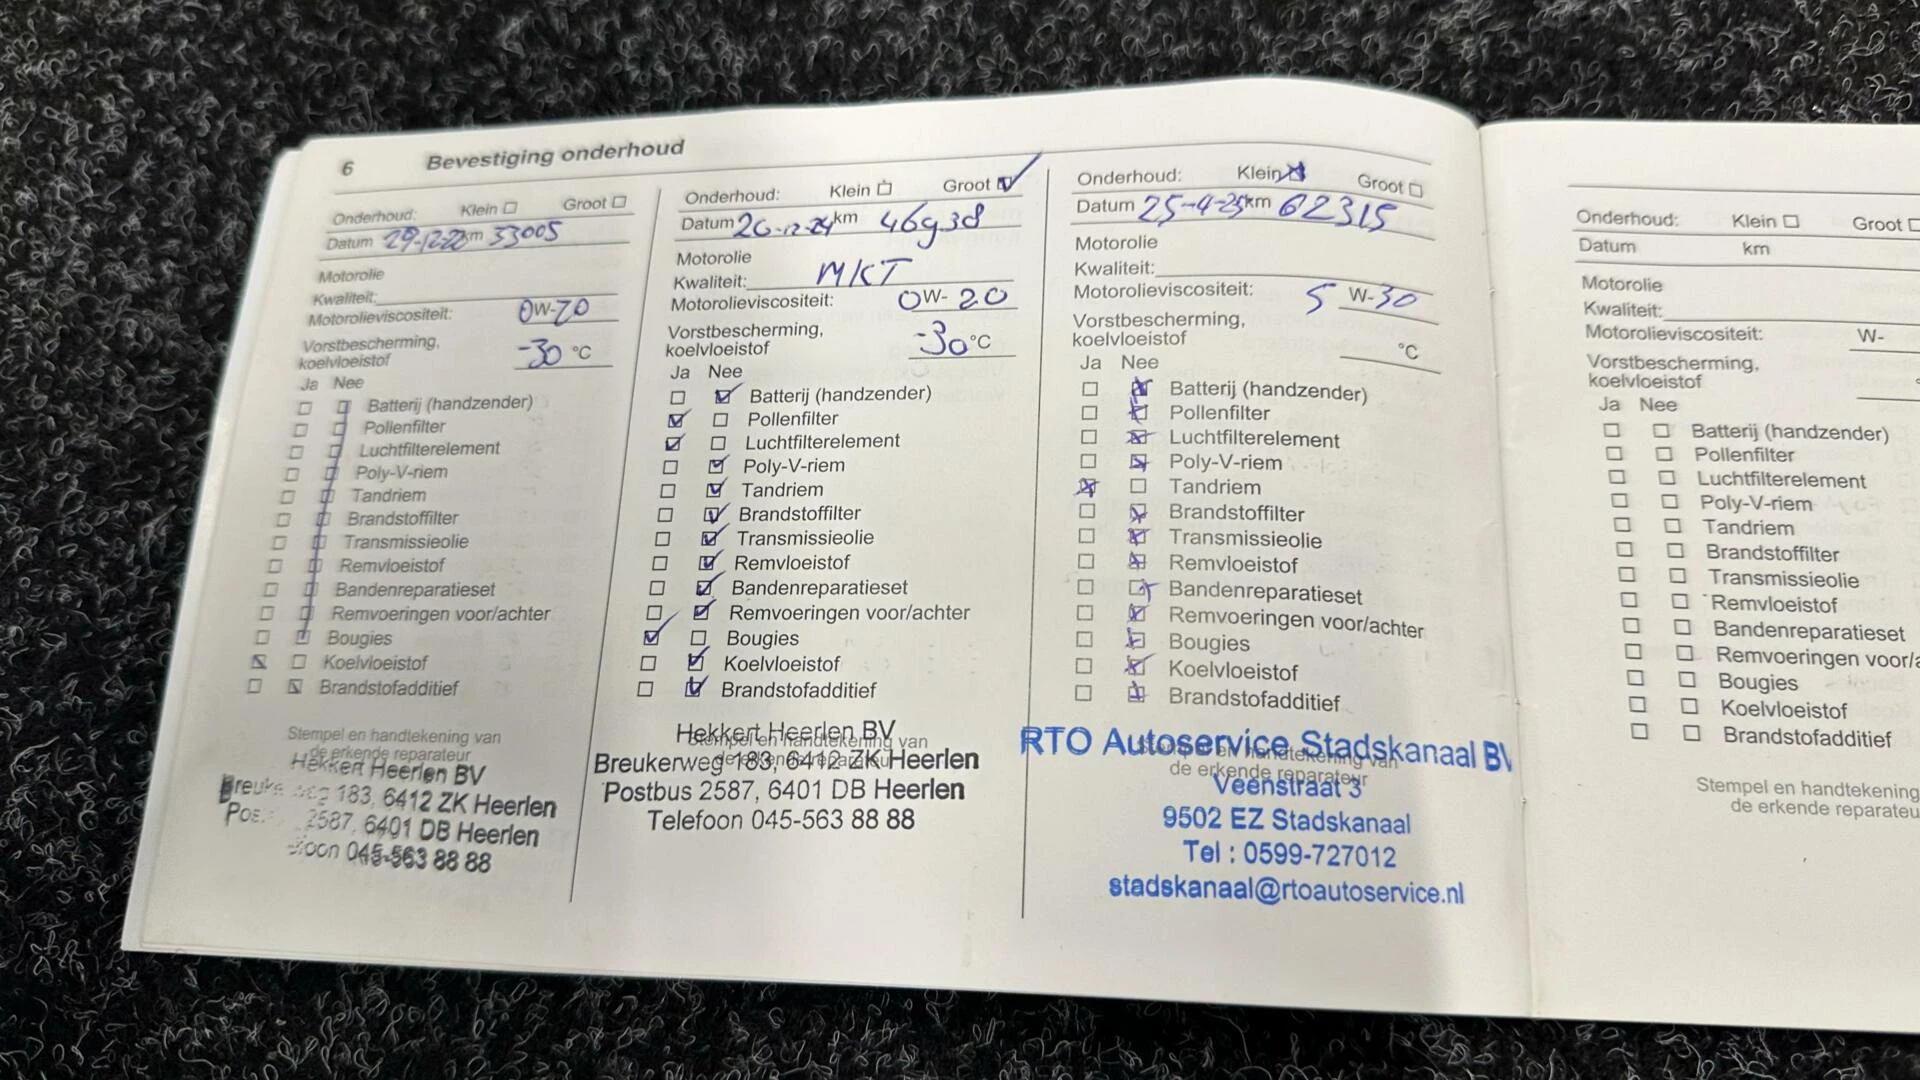 6 Bevestiging onderhoud
Onderhoud: Klein ☐ Groot ☐
Datum 29-12-22 km 33005
Motorolie
Kwaliteit:
Motorolieviscositeit: 0W-20
Vorstbescherming,
koelvloeistof -30 °C
Ja Nee
Batterij (handzender)
Pollenfilter
Luchtfilterelement
Poly-V-riem
Tandriem
Brandstoffilter
Transmissieolie
Remvloeistof
Bandenreparatieset
Remvoeringen voor/achter
Bougies
Koelvloeistof
Brandstofadditief
Stempel en handtekening van
de erkende reparateur
Hekkert Heerlen BV
183, 6412 ZK Heerlen
2587, 6401 DB Heerlen
045-563 88 88
Onderhoud: Klein ☐ Groot ☑
Datum 20-12-24 km 46938
Motorolie
Kwaliteit: MKT
Motorolieviscositeit: 0W-20
Vorstbescherming,
koelvloeistof -30 °C
Ja Nee
Batterij (handzender)
Pollenfilter
Luchtfilterelement
Poly-V-riem
Tandriem
Brandstoffilter
Transmissieolie
Remvloeistof
Bandenreparatieset
Remvoeringen voor/achter
Bougies
Koelvloeistof
Brandstofadditief
Stempel en handtekening van
de erkende reparateur
Hekkert Heerlen BV
Breukerweg 183, 6412 ZK Heerlen
Postbus 2587, 6401 DB Heerlen
Telefoon 045-563 88 88
Onderhoud: Klein ☒ Groot ☐
Datum 25-4-25 km 62315
Motorolie
Kwaliteit:
Motorolieviscositeit: 5 W-30
Vorstbescherming,
koelvloeistof °C
Ja Nee
Batterij (handzender)
Pollenfilter
Luchtfilterelement
Poly-V-riem
Tandriem
Brandstoffilter
Transmissieolie
Remvloeistof
Bandenreparatieset
Remvoeringen voor/achter
Bougies
Koelvloeistof
Brandstofadditief
Stempel en handtekening van
de erkende reparateur
RTO Autoservice Stadskanaal BV
Veenstraat 3
9502 EZ Stadskanaal
Tel : 0599-727012
stadskanaal@rtoautoservice.nl
Onderhoud: Klein ☐ Groot ☐
Datum km
Motorolie
Kwaliteit:
Motorolieviscositeit: W-
Vorstbescherming,
koelvloeistof
Ja Nee
Batterij (handzender)
Pollenfilter
Luchtfilterelement
Poly-V-riem
Tandriem
Brandstoffilter
Transmissieolie
Remvloeistof
Bandenreparatieset
Remvoeringen voor/a
Bougies
Koelvloeistof
Brandstofadditief
Stempel en handtekening
de erkende reparateu